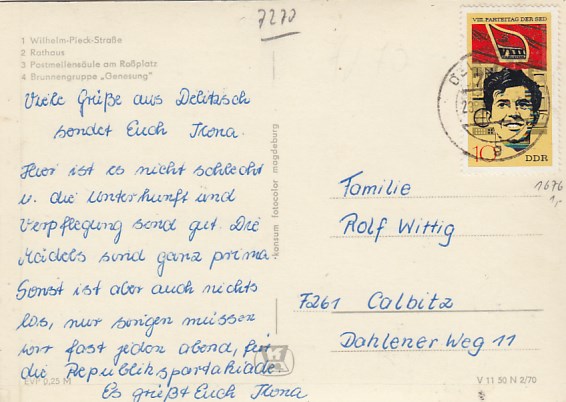 7270
1 Wilhelm-Pieck-Straße
2 Rathaus
3 Postmeilensäule am Roßplatz
4 Brunnengruppe „Genesung"
Viele Grüße aus Delitzsch
sendet Euch Ilona.
Hier ist es nicht schlecht
u. die Unterkunft und
Verpflegung sind gut. Die
Mädels sind ganz prima
Sonst ist aber auch nichts
los, nur singen müssen
wir fast jeden abend, für
die Republikspartakiade.
Es grüßt Euch Ilona
EVP 0,25 M
konsum fotocolor magdeburg
VIII. PARTEITAG DER SED
10
DDR
1676
1,-
Familie
Rolf Wittig
7261 Calbitz
Dahlener Weg 11
V 11 50 N 2/70